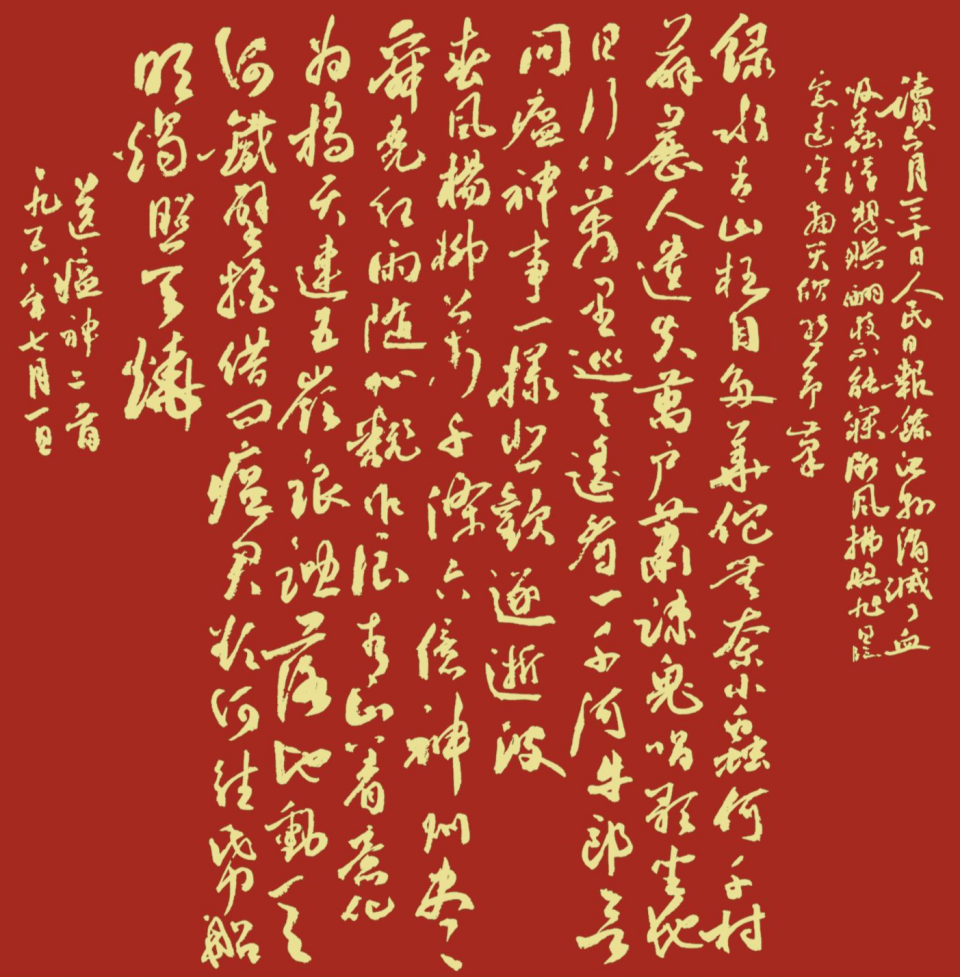 讀六月三十日人民日報餘江縣消滅了血
吸蟲浮想聯翩夜不能寐微風拂煦旭日臨
窗遙望南天欣然命筆
綠水青山枉自多華佗無奈小蟲何千村
薜荔人遺矢萬户蕭疎鬼唱歌坐地
日行八萬里巡天遙看一千河牛郎欲
問瘟神事一樣悲歡逐逝波
春風楊柳萬千條六億神州盡
舜堯紅雨隨心翻作浪青山着意化
为橋天連五嶺銀鋤落地動三
河鐵臂搖借問瘟君欲何往紙船
明燭照天燒
送瘟神二首
一九五八年七月一日